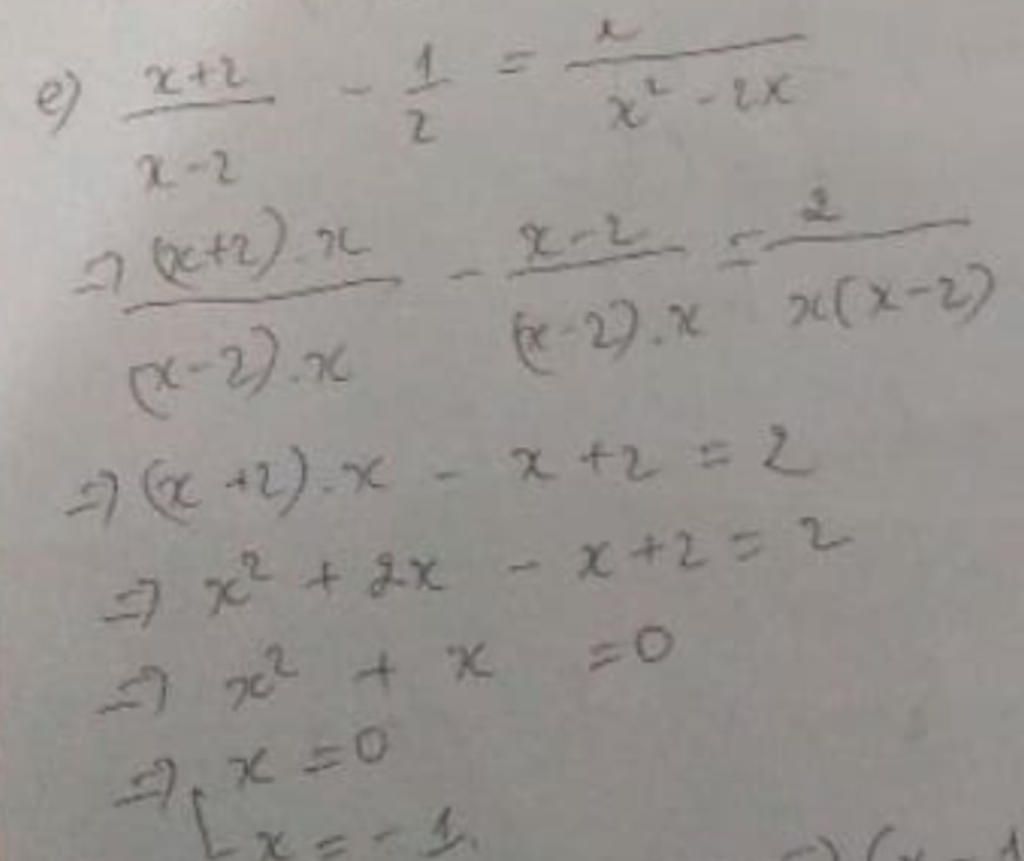 e) (x+2)/(x-2) - 1/2 = 2/(x² - 2x)
=> ((x+2).x)/((x-2).x) - (x-2)/((x-2).x) = 2/(x(x-2))
=> (x+2).x - x+2 = 2
=> x² + 2x - x+2 = 2
=> x² + x = 0
=> [ x = 0
x = -1.